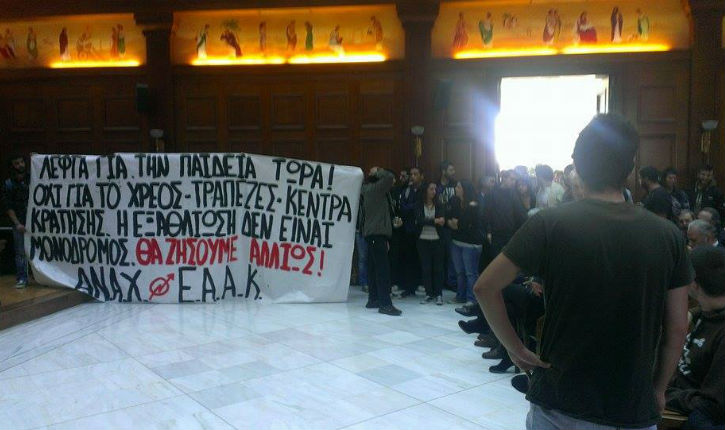 ΛΕΦΤΑ ΓΙΑ ΤΗΝ ΠΑΙΔΕΙΑ ΤΩΡΑ!
ΟΧΙ ΓΙΑ ΤΟ ΧΡΕΟΣ-ΤΡΑΠΕΖΕΣ-ΚΕΝΤΡΑ
ΚΡΑΤΗΣΗΣ. Η ΕΞΑΘΛΙΩΣΗ ΔΕΝ ΕΙΝΑΙ
ΜΟΝΟΔΡΟΜΟΣ. ΘΑ ΖΗΣΟΥΜΕ ΑΛΛΙΩΣ!
ΑΝΑΧ. Ε.Α.Α.Κ.